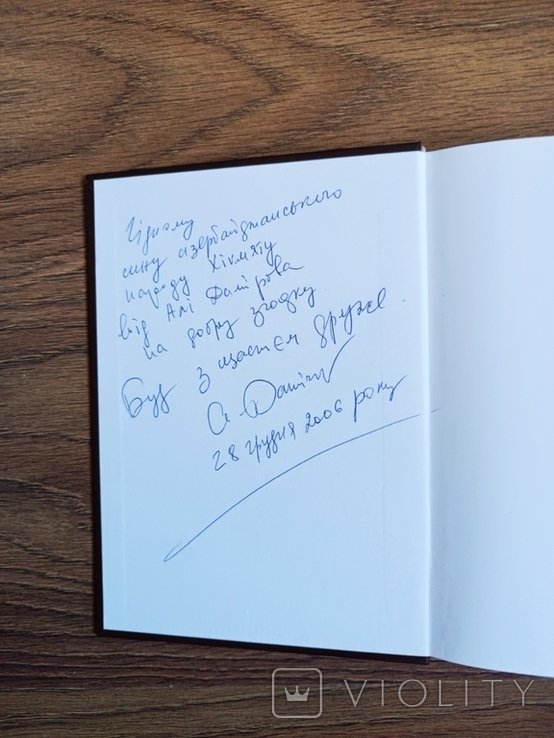 Гідному
сину азербайджанського
народу Хікмату
від Алі Даміrова
на добру згадку.
Будь з щастєм друже.
28 грудня 2006 року
VIOLITY